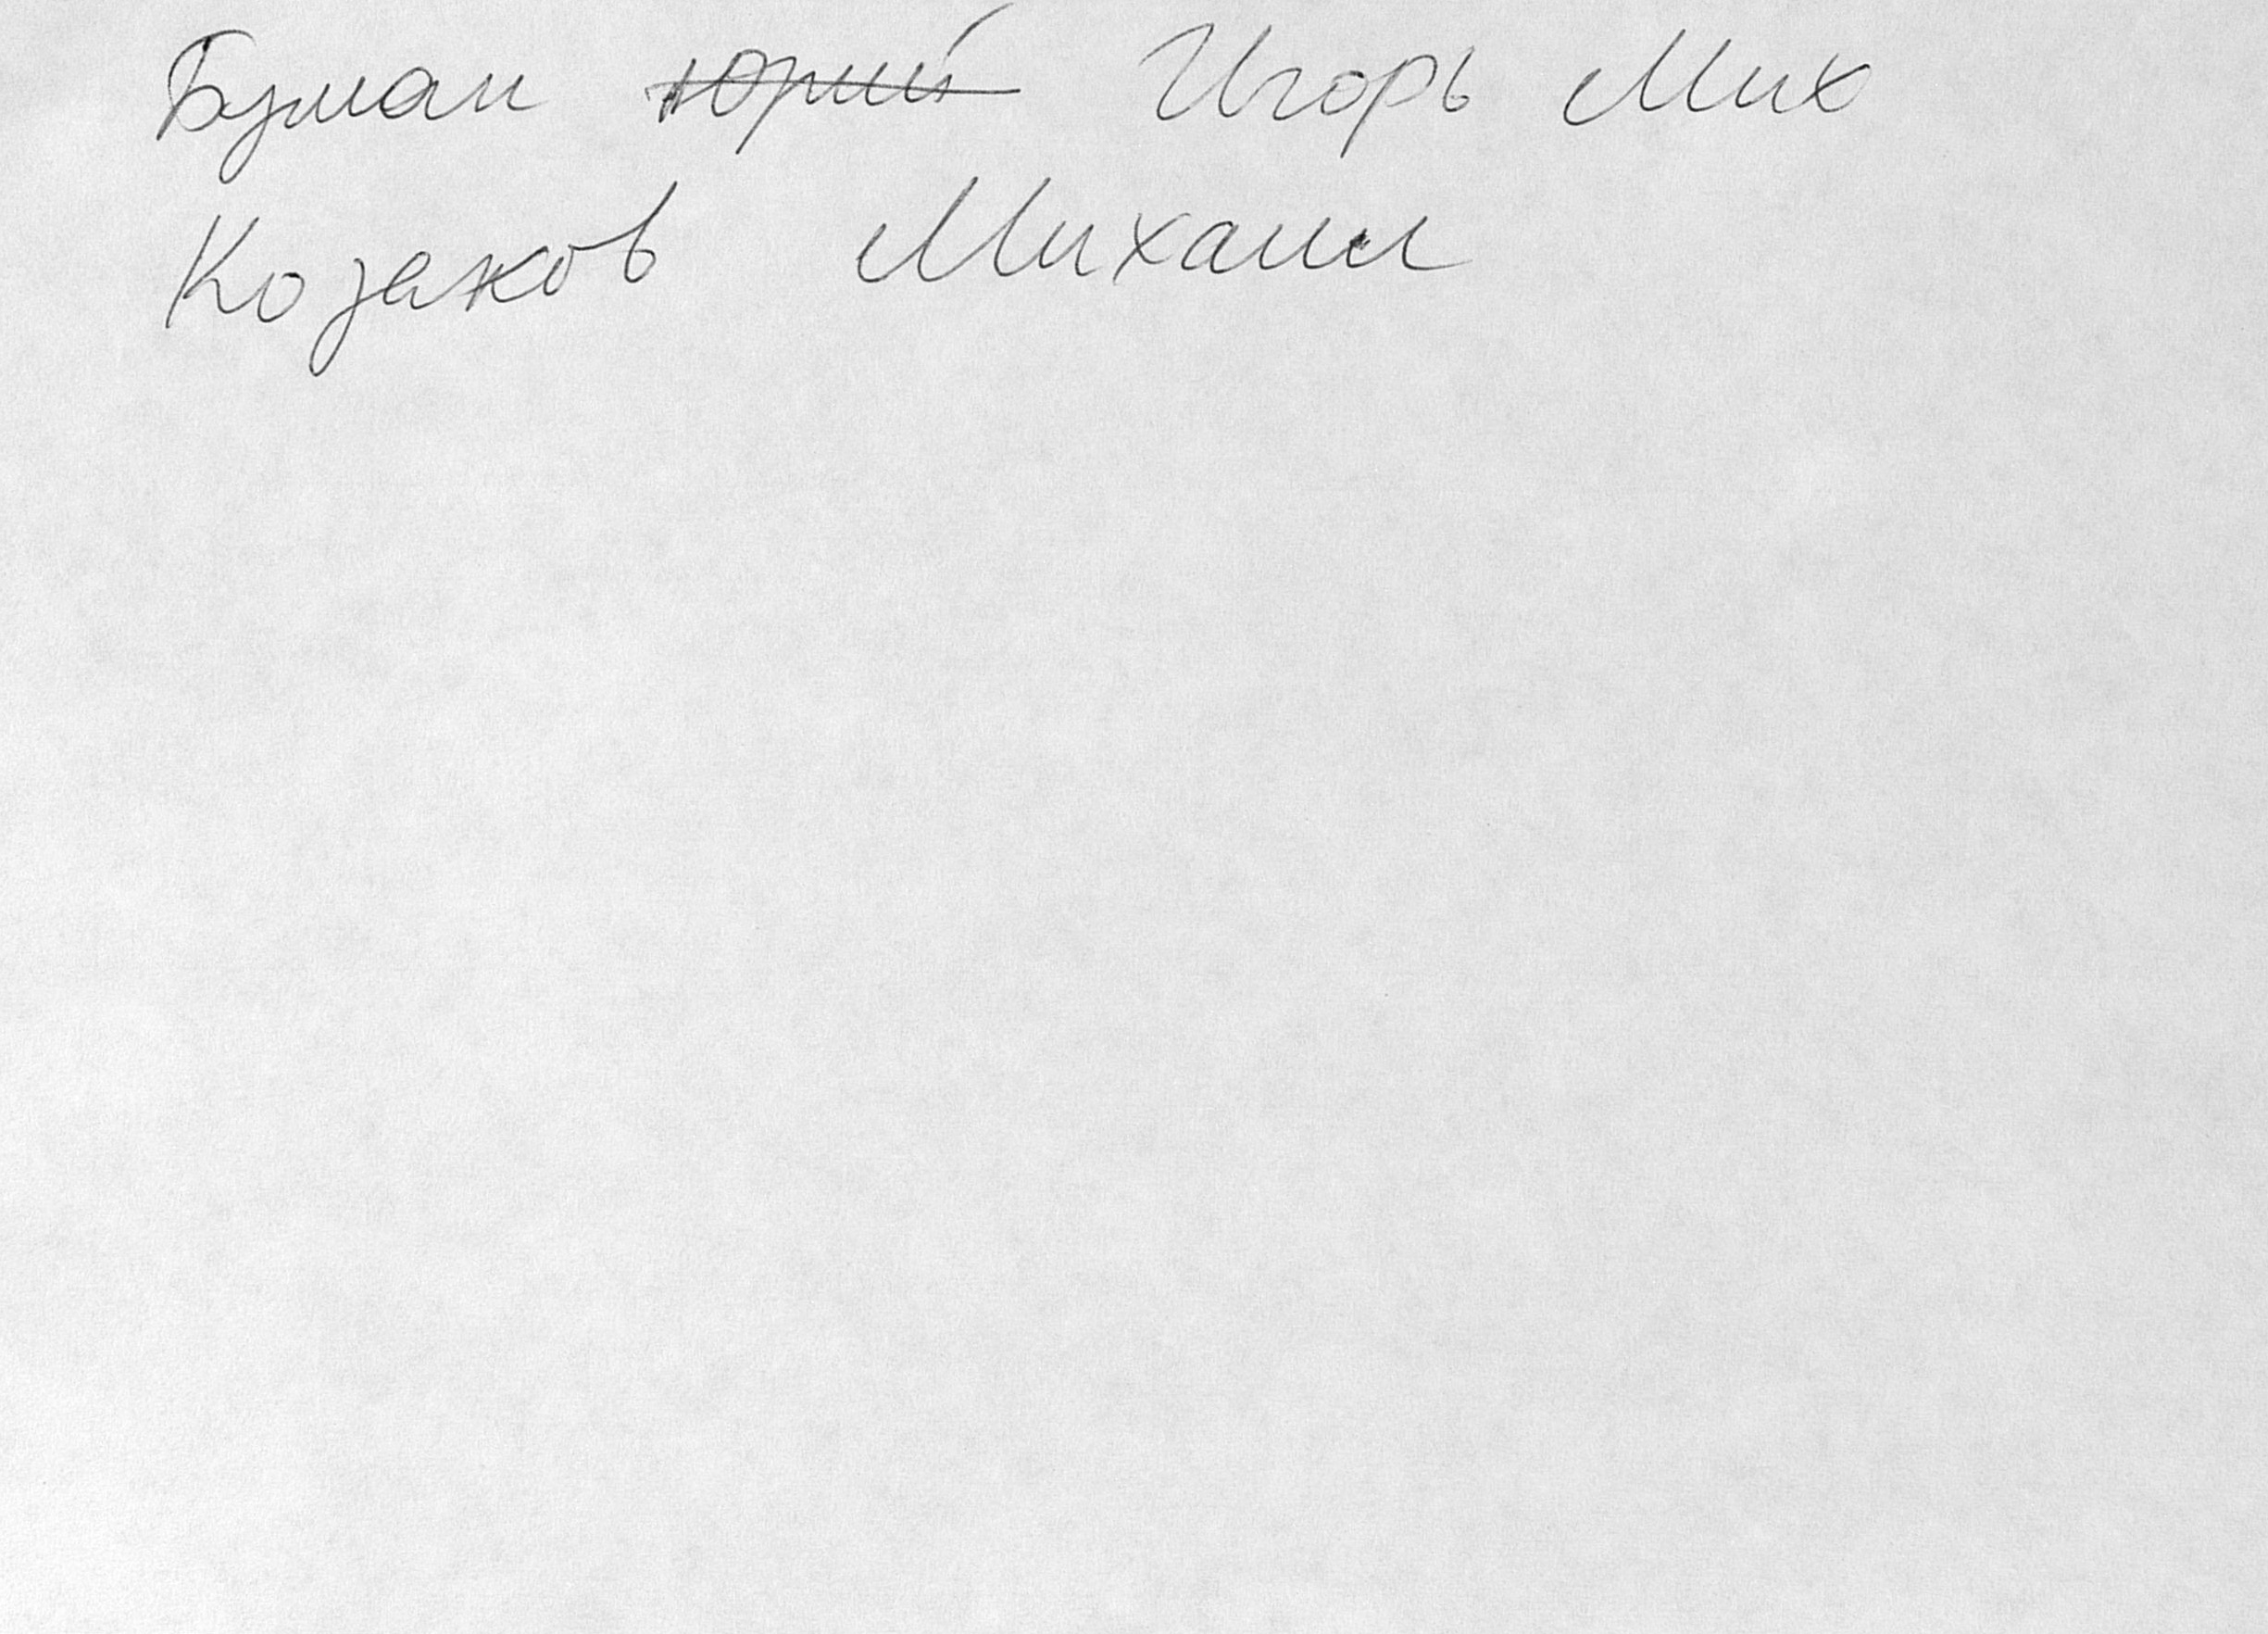 Буман Юрий Игорь Мих
Козаков Михаил